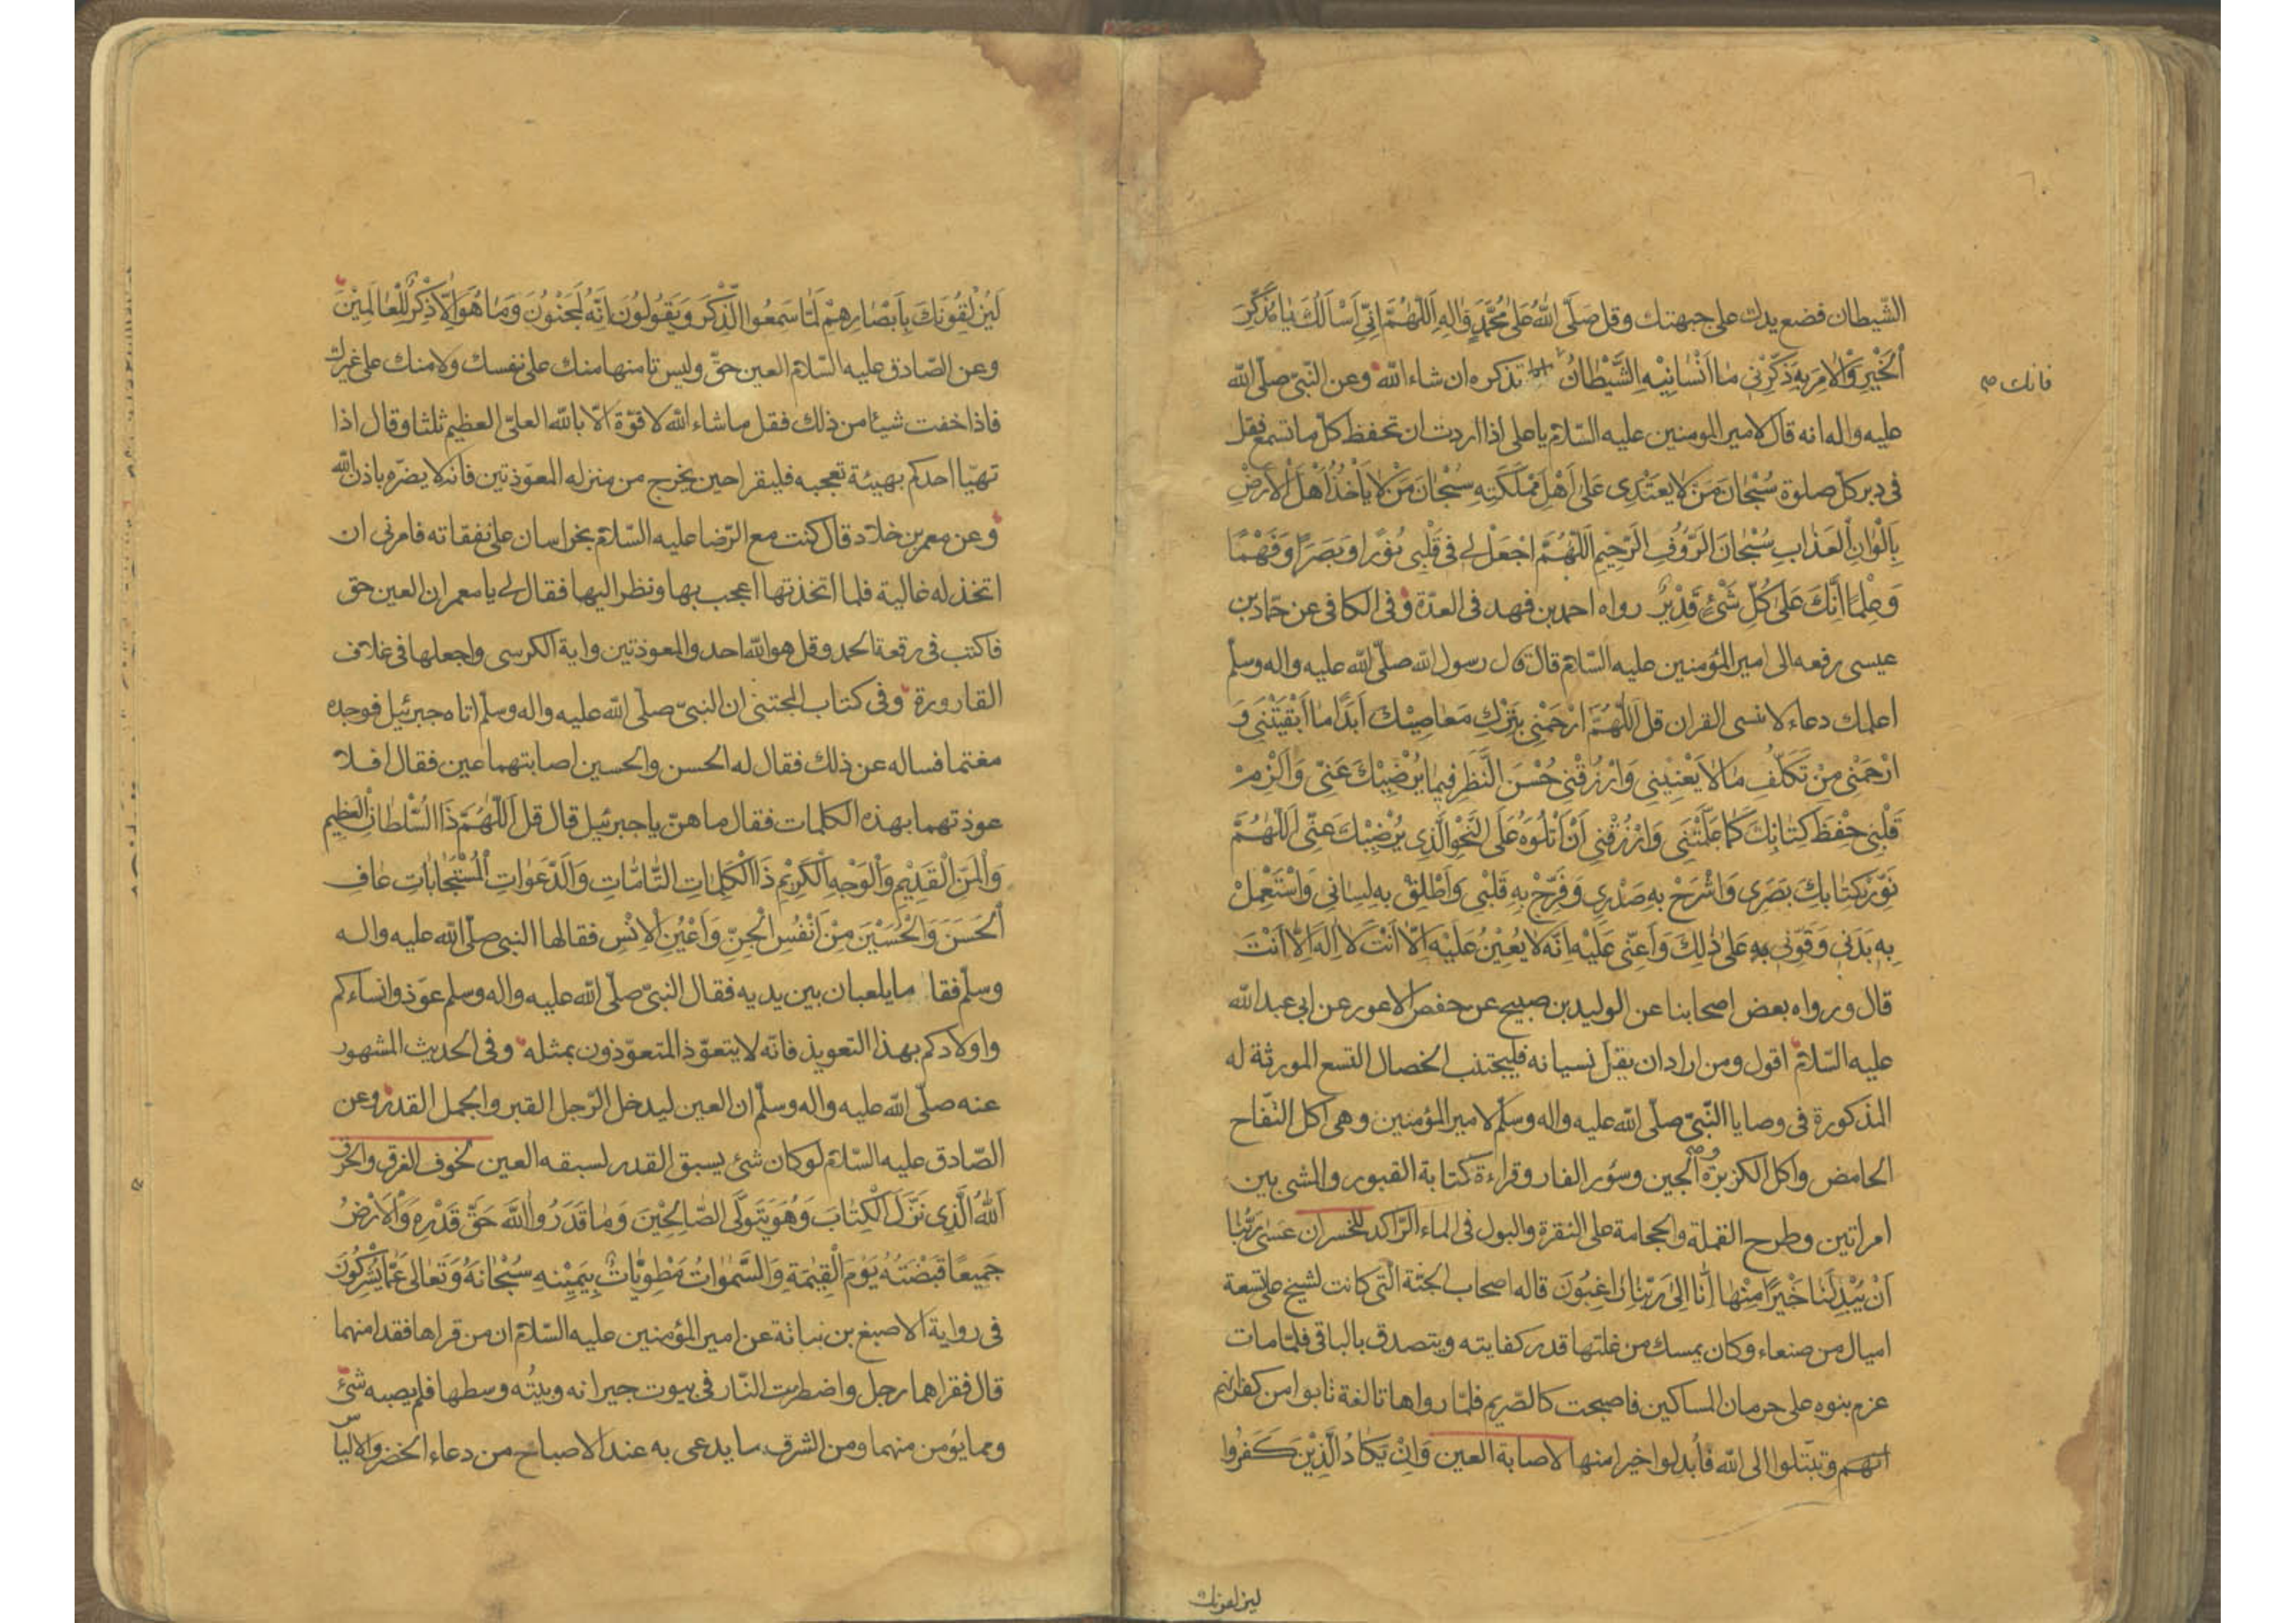 الشّيطان فضع يدك على جبهتك وقل صَلَّى اللهُ عَلىٰ مُحَمَّدٍ وَاٰلِهِ اَللّٰهُمَّ اِنّى اَسْاَلُكَ يٰا مُذَكِّرَ
الْخَيْرِ وَالْاٰمِرَ بِهِ ذَكِّرْنى مٰا اَنْسٰانِيْهِ الشَّيْطٰانُ تذكره ان شاء الله وعن النّبىّ صلّى الله
فانك صح
عليه واله انه قال لامير المومنين عليه السّلام يا على اذا اردت ان تحفظ كلّ ما تسمع فقل
فى دبر كلّ صلوة سُبْحٰانَ مَنْ لاٰ يَعْتَدِى عَلىٰ اَهْلِ مَمْلَكَتِهِ سُبْحٰانَ مَنْ لاٰ يَأْخُذُ اَهْلَ الْاَرْضِ
بِاَلْوٰانِ الْعَذٰابِ سُبْحٰانَ الرَّؤُفِ الرَّحِيْمِ اَللّٰهُمَّ اجْعَلْ لى فى قَلْبِى نُوْرًا وَبَصَرًا وَفَهْمًا
وَعِلْمًا اِنَّكَ عَلىٰ كُلِّ شَىْءٍ قَدِيْرٌ رواه احمد بن فهد فى العدّة وفى الكافى عن حمّاد بن
عيسى رفعه الى امير المؤمنين عليه السّلام قال قال رسول الله صلّى الله عليه واله وسلّم
اعلمك دعاء لا تنسى القران قل اَللّٰهُمَّ ارْحَمْنِى بِتَرْكِ مَعٰاصِيْكَ اَبَدًا مٰا اَبْقَيْتَنِى وَ
ارْحَمْنِى مِنْ تَكَلُّفِ مٰا لاٰ يَعْنِيْنِى وَارْزُقْنِى حُسْنَ النَّظَرِ فِيمٰا يُرْضِيْكَ عَنِّى وَاَلْزِمْ
قَلْبِى حِفْظَ كِتٰابِكَ كَمٰا عَلَّمْتَنِى وَارْزُقْنِى اَنْ اَتْلُوَهُ عَلَى النَّحْوِ الَّذِى يُرْضِيْكَ عَنِّى اَللّٰهُمَّ
نَوِّرْ بِكِتٰابِكَ بَصَرِى وَاشْرَحْ بِهِ صَدْرِى وَفَرِّحْ بِهِ قَلْبِى وَاَطْلِقْ بِهِ لِسٰانِى وَاسْتَعْمِلْ
بِهِ بَدَنِى وَقَوِّنِى بِهِ عَلىٰ ذٰلِكَ وَاَعِنِّى عَلَيْهِ اِنَّهُ لاٰ يُعِيْنُ عَلَيْهِ اِلاّٰ اَنْتَ لاٰ اِلٰهَ اِلاّٰ اَنْتَ
قال ورواه بعض اصحابنا عن الوليد بن صبيح عن حفص الاعور عن ابى عبد الله
عليه السّلام اقول ومن اراد ان يقلّ نسيانه فليجتنب الخصال التسع المورثة له
المذكورة فى وصايا النّبىّ صلّى الله عليه واله وسلّم لامير المؤمنين وهى اكل التفّاح
الحامض واكل الكزبرة والجبن وسؤر الفار وقراءة كتابة القبور والمشى بين
امراتين وطرح القملة والحجامة على النقرة والبول فى الماء الرّاكد للخسران عَسىٰ رَبُّنٰا
اَنْ يُبْدِلَنٰا خَيْرًا مِنْهٰا اِنّٰا اِلىٰ رَبِّنٰا رٰاغِبُوْنَ قاله اصحاب الجنّة الّتى كانت لشيخ على تسعة
اميال من صنعاء وكان يمسك من غلتها قدر كفايته ويتصدق بالباقى فلمّا مات
عزم بنوه على حرمان المساكين فاصبحت كالصّريم فلمّا راوها تالفة تابوا من كفرانهم
وتبتّلوا الى الله فاُبدلوا خيرا منها لاصابة العين وَاِنْ يَكٰادُ الَّذِيْنَ كَفَرُوا
ليزلقونك
لَيُزْلِقُوْنَكَ بِاَبْصٰارِهِمْ لَمّٰا سَمِعُوا الذِّكْرَ وَيَقُوْلُوْنَ اِنَّهُ لَمَجْنُوْنٌ وَمٰا هُوَ اِلاّٰ ذِكْرٌ لِلْعٰالَمِيْنَ
وعن الصّادق عليه السّلام العين حقّ وليس تامنها منك على نفسك ولا منك على غيرك
فاذا خفت شيئا من ذلك فقل ما شاء الله لا قوّة الّا بالله العلىّ العظيم ثلثا وقال اذا
تهيّا احدكم بهيئة تعجبه فليقرا حين يخرج من منزله المعوّذتين فانه لا يضرّه باذن الله
وعن معمر بن خلاد قال كنت مع الرّضا عليه السّلام بخراسان على نفقاته فامرنى ان
اتخذ له غالية فلما اتخذتها اعجب بها ونظر اليها فقال لى يا معمر ان العين حق
فاكتب فى رقعة الحمد وقل هو الله احد والمعوذتين واية الكرسى واجعلها فى غلاف
القارورة وفى كتاب المجتنى ان النبىّ صلّى الله عليه واله وسلّم اتاه جبرئيل فوجده
مغتما فساله عن ذلك فقال له الحسن والحسين اصابتهما عين فقال افلا
عوذتهما بهذه الكلمات فقال ما هنّ يا جبرئيل قال قل اَللّٰهُمَّ ذَا السُّلْطٰانِ الْعَظِيمِ
وَالْمَنِّ الْقَدِيْمِ وَالْوَجْهِ الْكَرِيْمِ ذَا الْكَلِمٰاتِ التّٰامّٰاتِ وَالدَّعَوٰاتِ الْمُسْتَجٰابٰاتِ عٰافِ
الْحَسَنَ وَالْحُسَيْنَ مِنْ اَنْفُسِ الْجِنِّ وَاَعْيُنِ الْاِنْسِ فقالها النبى صلّى الله عليه واله
وسلّم فقاما يلعبان بين يديه فقال النبىّ صلّى الله عليه واله وسلم عوّذوا نساءكم
واولادكم بهذا التعويذ فانّه لا يتعوّذ المتعوّذون بمثله وفى الحديث المشهور
عنه صلّى الله عليه واله وسلّم ان العين ليدخل الرّجل القبر والجمل القدر وعن
الصّادق عليه السّلام لو كان شئ يسبق القدر لسبقه العين لخوف الغرق والحرق
اَللهُ الَّذِى نَزَّلَ الْكِتٰابَ وَهُوَ يَتَوَلَّى الصّٰالِحِيْنَ وَمٰا قَدَرُوا اللهَ حَقَّ قَدْرِهِ وَالْاَرْضُ
جَمِيعًا قَبْضَتُهُ يَوْمَ الْقِيٰمَةِ وَالسَّمٰوٰاتُ مَطْوِيّٰاتٌ بِيَمِيْنِهِ سُبْحٰانَهُ وَتَعٰالىٰ عَمّٰا يُشْرِكُوْنَ
فى رواية الاصبغ بن نباتة عن امير المؤمنين عليه السّلام ان من قراها فقد امنهما
قال فقراهما رجل واضطرمت النّار فى بيوت جيرانه وبيتُه وسطها فلم يصبه شئ
ومما يؤمن منهما ومن الشرق ما يدعى به عند الاصباح من دعاء الخضر والالياس